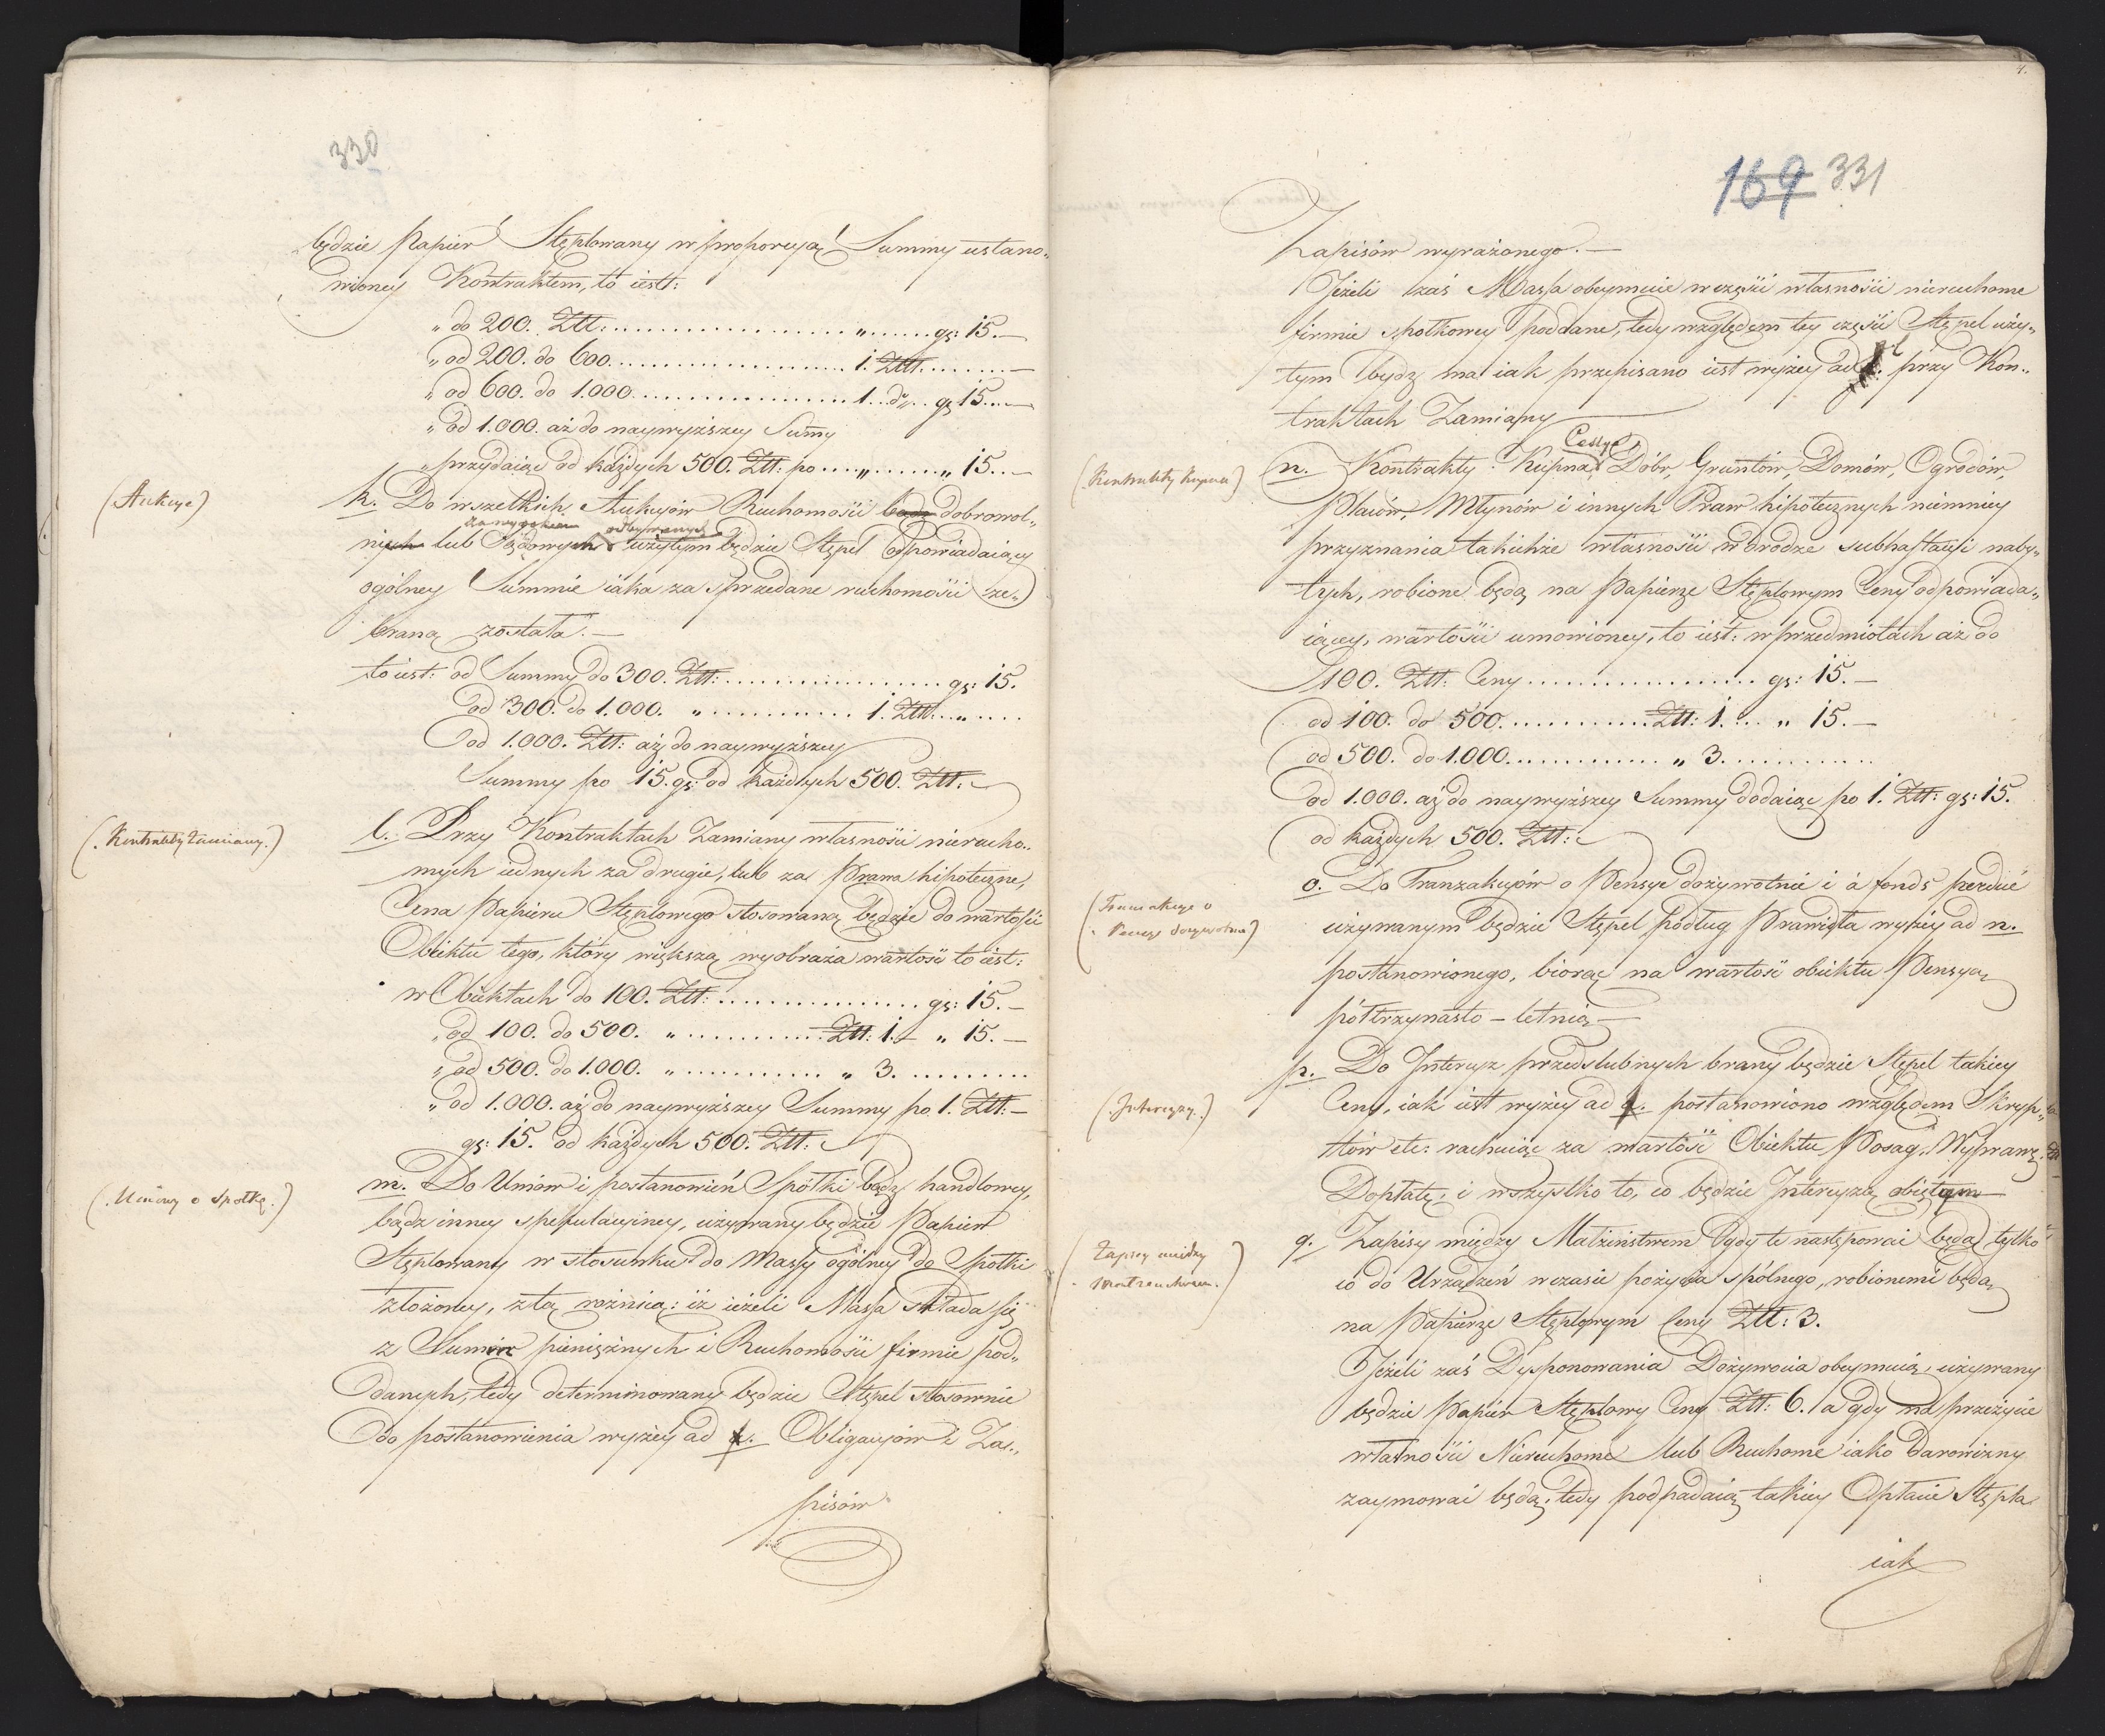 330
będzie Papier Stęplowany w proporcyą Summy ustano„
wioney Kontraktem, to iest:
„ do 200. Złł: .................... „ ....... gr: 15. —
„ od 200. do 600. .................... 1. Złł. ........ —
„ od 600. do 1.000. .................... 1. do „ .. gr 15. .... —
„ od 1.000. aż do naywyższey Summy
„ przydaiąc od każdych 500. Złł: po .... „ ........ „ 15. .. —
(Aukcye)
k. Do wszelkich Aukcyów Ruchomości bądź dobrowol„
za wyrokiem odbywanych
nych lub Sądowych użytym będzie Stępel odpowiadaiący
ogólney Summie iaka za sprzedane ruchomości ze„
braną została. —
to iest: od Summy do 300. Złł: .................... gr: 15.
od 300. do 1.000. „ ............ 1. Złł. .. „ ....
od 1.000. Złł: aż do naywyższey
Summy po 15. gr: od każdych 500. Złł: —
(Kontrakty Zamiany.)
l. Przy Kontraktach Zamiany własności nierucho„
mych iednych za drugie, lub za Prawa hipoteczne,
Cena Papieru Stęplowego stosowaną będzie do wartości
Obiektu tego, który większą wyobraża wartość to iest:
w Obiektach do 100. Złł: ................ gr: 15. —
„ od 100. do 500. „ ............ Złł: 1. — „ 15. —
„ od 500. do 1.000. „ ............ „ 3. ..........
„ od 1.000. aż do naywyższey Summy po 1. Złł: —
gr: 15. od każdych 500. Złł: —
(Umowy o Spółkę.)
m. Do Umów i postanowień Spółki bądź handlowey,
bądź inney spekulacyiney, używany będzie Papier
Stęplowany w stosunku do Massy ogólney do Spółki
złożoney, z tą różnicą: iż ieżeli Massa składa się
z Summ pieniężnych i Ruchomości firmie pod„
danych, tedy determinowany będzie Stępel stosownie
do postanowienia wyżey ad Obligacyiów i Za„
pisów
4.
169 331
Zapisów wyrażonego. —
Jeżeli zaś Massa obeymuie w części własności nieruchome
firmie spółkowey poddane, tedy względem tey części Stępel uży„
tym bydź ma iak przepisano iest wyżey ad l. przy Kon„
traktach Zamiany —
(Kontrakty Kupna)
Cessye
n. Kontrakty Kupna, Dóbr, Gruntów, Domów, Ogrodów,
Placów, Młynów i innych Praw hipotecznych niemniey
przyznania takichże własności w drodze subhastacyi naby„
tych, robione będą na Papierze Stęplowym Ceny odpowiada„
iącey, wartości umowioney, to iest: w przedmiotach aż do
100. Złł: Ceny .................... gr: 15. —
od 100. do 500. ............ Złł: 1. ... „ 15. —
od 500. do 1.000. ............ „ 3. ............
od 1.000. aż do naywyższey Summy dodaiąc po 1. Złł: gr: 15.
od każdych 500. Złł: —
(Transakcye o
Pensye dożywotnie)
o. Do Tranzakcyów o Pensye dożywotnie i á fonds perdue
używanym będzie Stępel podług Prawidła wyżey ad n.
postanowionego, biorąc na wartość obiektu Pensyą
półtrzynasto - letnią —
(Intercyzy.)
p. Do Intercyz przedslubnych brany będzie Stępel takiey
Ceny, iak iest wyżey ad postanowiono względem Skryp„
tów etc: rachuiąc za wartość Obiektu Posag, Wyprawę,
Dopłatę, i wszystko to, co będzie Intercyzą obiętym —
(Zapisy między
Małżeństwem.)
q. Zapisy między Małżeństwem gdy te nastąpować będą tylko
co do Urządzeń w czasie pożycia spólnego, robionemi będą
na Papierze Stęplowym Ceny Złł: 3.
Jeżeli zaś Dysponowania Dożywocia obeymuią, używany
będzie Papier Stęplowy Ceny Złł: 6. a gdy na przeżycie
własności Nieruchome lub Ruchome iako Darowizny
zaymować będą, tedy podpadaią takiey Opłacie Stępla
iak